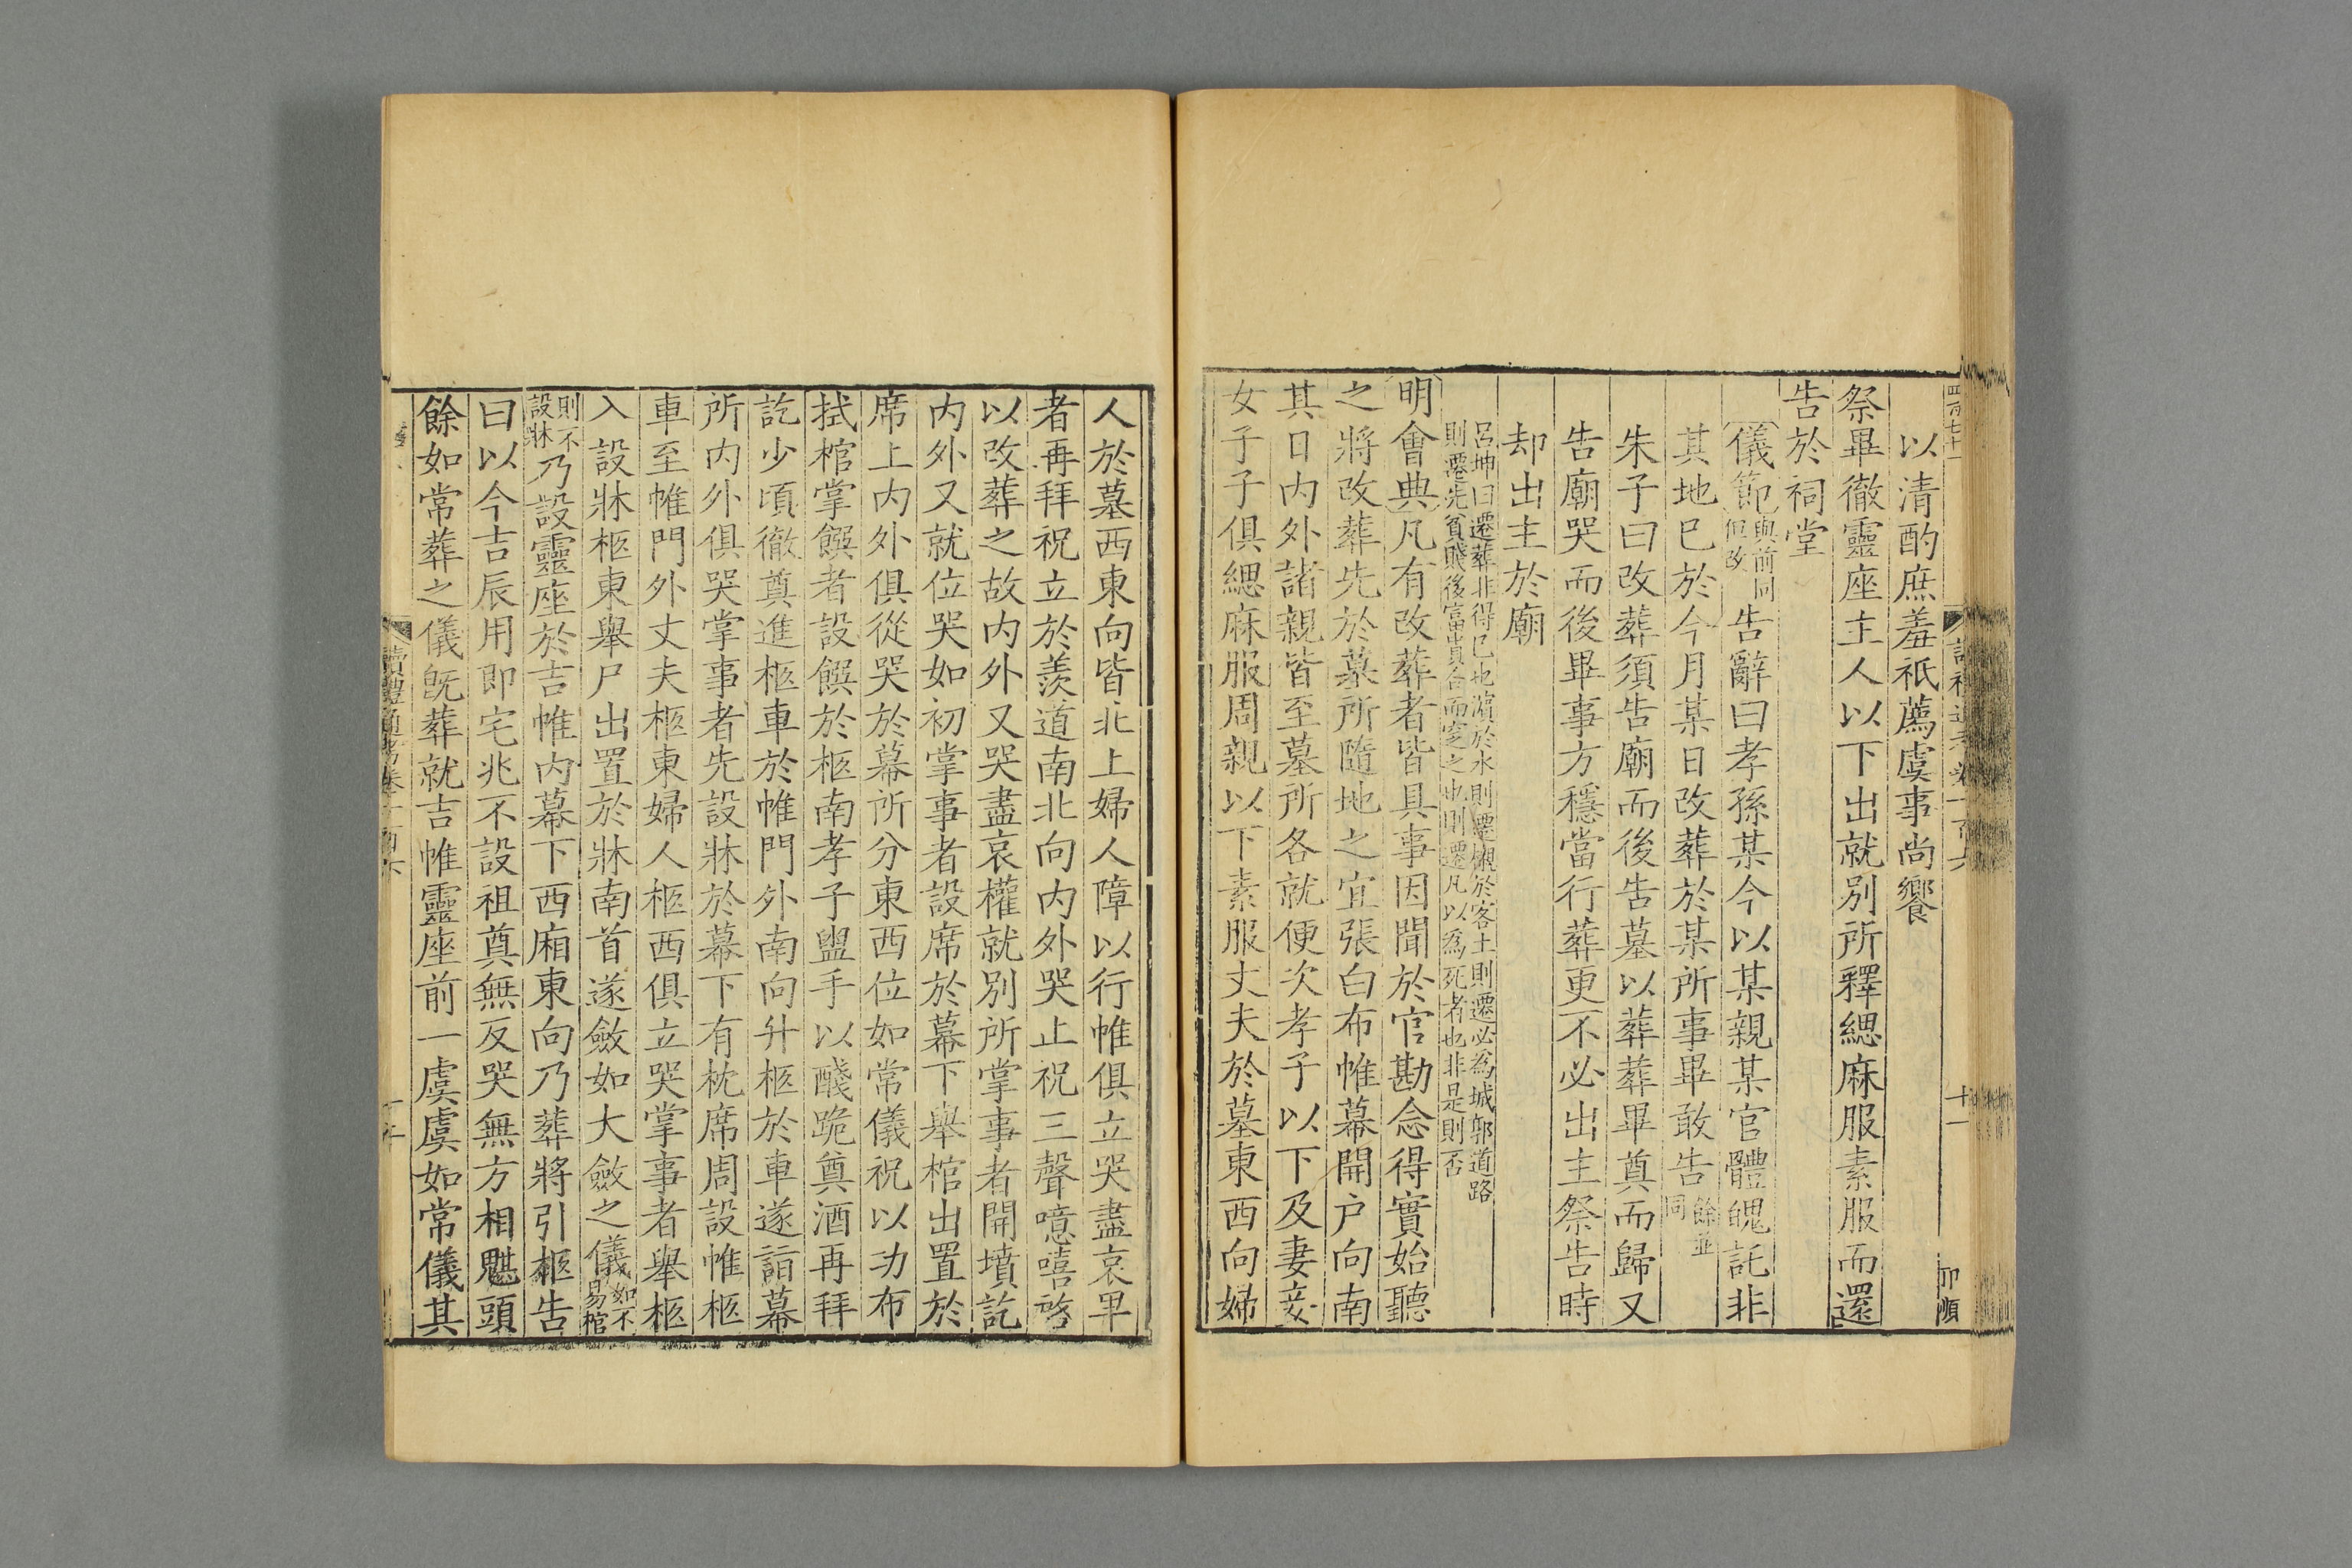 以清酌庶羞祇薦虞事尚饗
祭畢徹靈座主人以下出就別所釋緦麻服素服而還
告於祠堂
儀節與前同但改告辭曰孝孫某今以某親某官體魄託非
其地已於今月某日改葬於某所事畢敢告餘並同
朱子曰改葬須告廟而後告墓以葬葬畢奠而歸又
告廟哭而後畢事方穩當行葬更不必出主祭告時
却出主於廟
呂坤曰遷葬非得已也濵於水則遷櫬於客土則遷必爲城郭道路
則遷先貧賤後富貴具合而窆之也則遷凡以爲死者也非是則否
明會典凡有改葬者皆具事因聞於官勘念得實始聽
之將改葬先於墓所隨地之宜張白布帷幕開戶向南
其日内外諸親皆至墓所各就便次孝子以下及妻妾
女子子俱緦麻服周親以下素服丈夫於墓東西向婦
人於墓西東向皆北上婦人障以行帷俱立哭盡哀畢
者再拜祝立於羨道南北向内外哭止祝三聲噫嘻啓
以改葬之故内外又哭盡哀權就別所掌事者開墳訖
内外又就位哭如初掌事者設席於幕下舉棺出置於
席上内外俱從哭於幕所分東西位如常儀祝以功布
拭棺掌饌者設饌於柩南孝子盥手以醆跪奠酒再拜
訖少頃徹奠進柩車於帷門外南向升柩於車遂詣幕
所内外俱哭掌事者先設牀於幕下有枕席周設帷柩
車至帷門外丈夫柩東婦人柩西俱立哭掌事者舉柩
入設牀柩東舉尸出置於牀南首遂斂如大斂之儀如不易棺
則不設牀乃設靈座於吉帷内幕下西廂東向乃葬將引柩告
曰以今吉辰用即宅兆不設祖奠無反哭無方相魌頭
餘如常葬之儀旣葬就吉帷靈座前一虞虞如常儀其
讀禮通考卷一百六